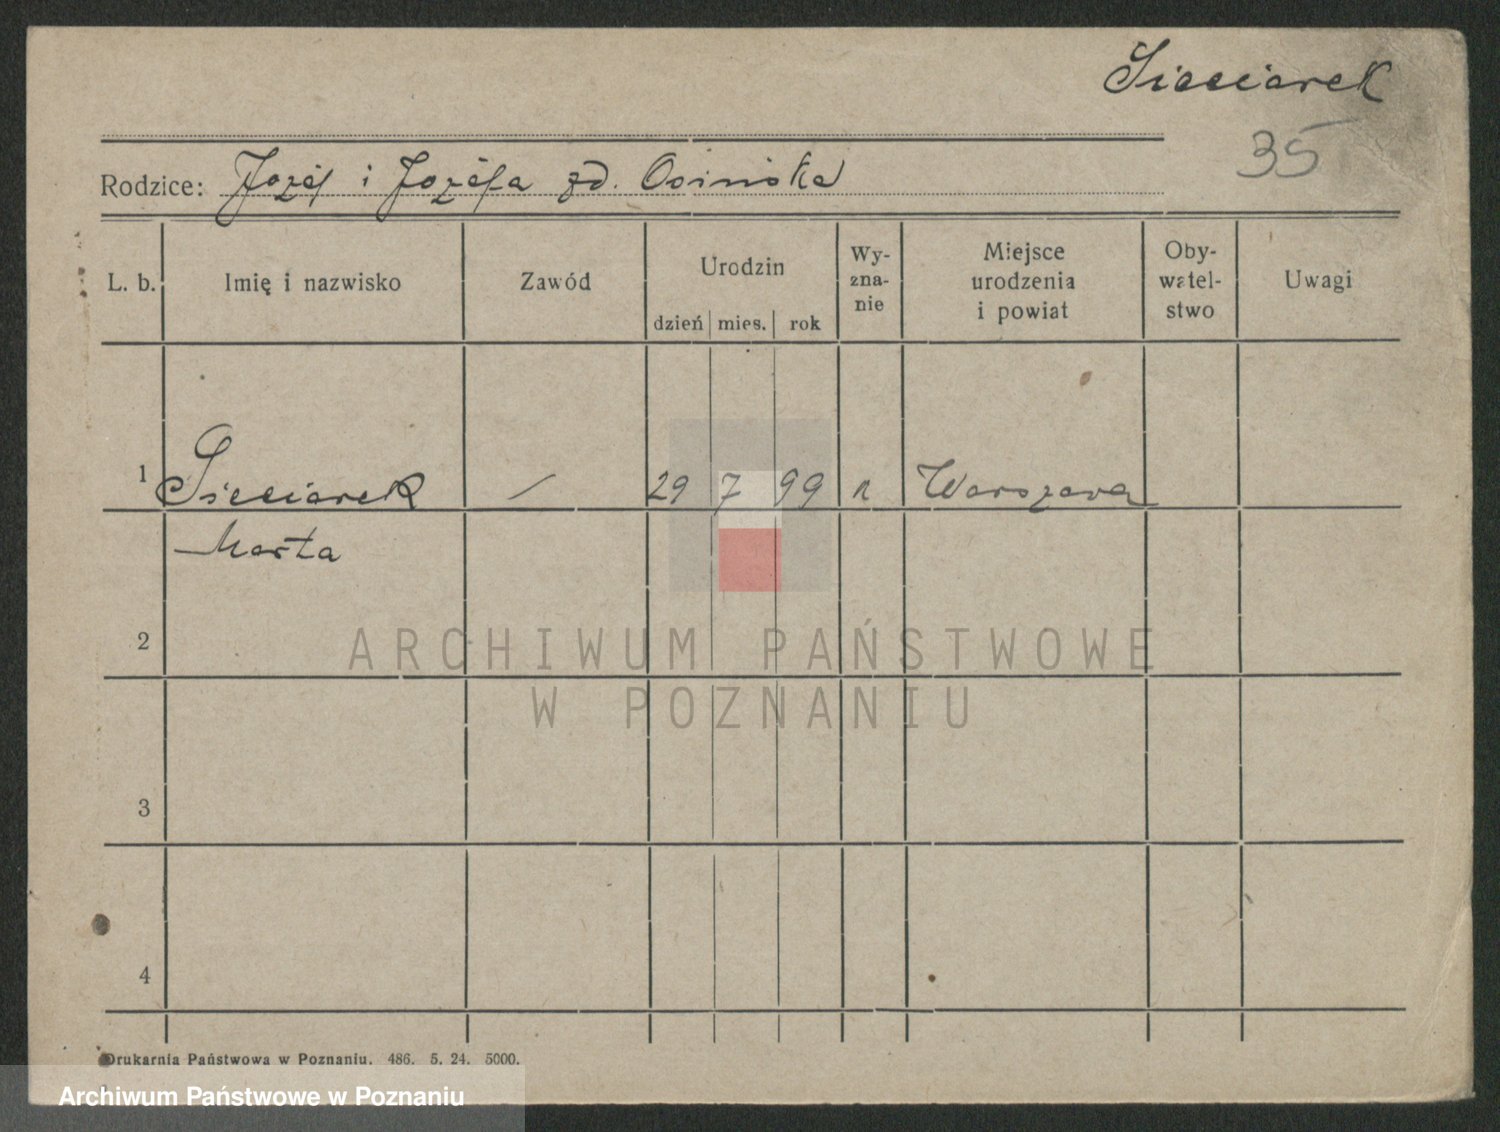 Sieciarek
35
Rodzice: Józef i Józefa zd. Osińska
L. b. Imię i nazwisko Zawód Urodzin dzień mies. rok Wy-zna-nie Miejsce urodzenia i powiat Oby-watel-stwo Uwagi
1 Sieciarek / 29 7 99 Warszawa
Marta
2
ARCHIWUM PAŃSTWOWE
W POZNANIU
3
4
Drukarnia Państwowa w Poznaniu. 486. 5. 24. 5000.
Archiwum Państwowe w Poznaniu